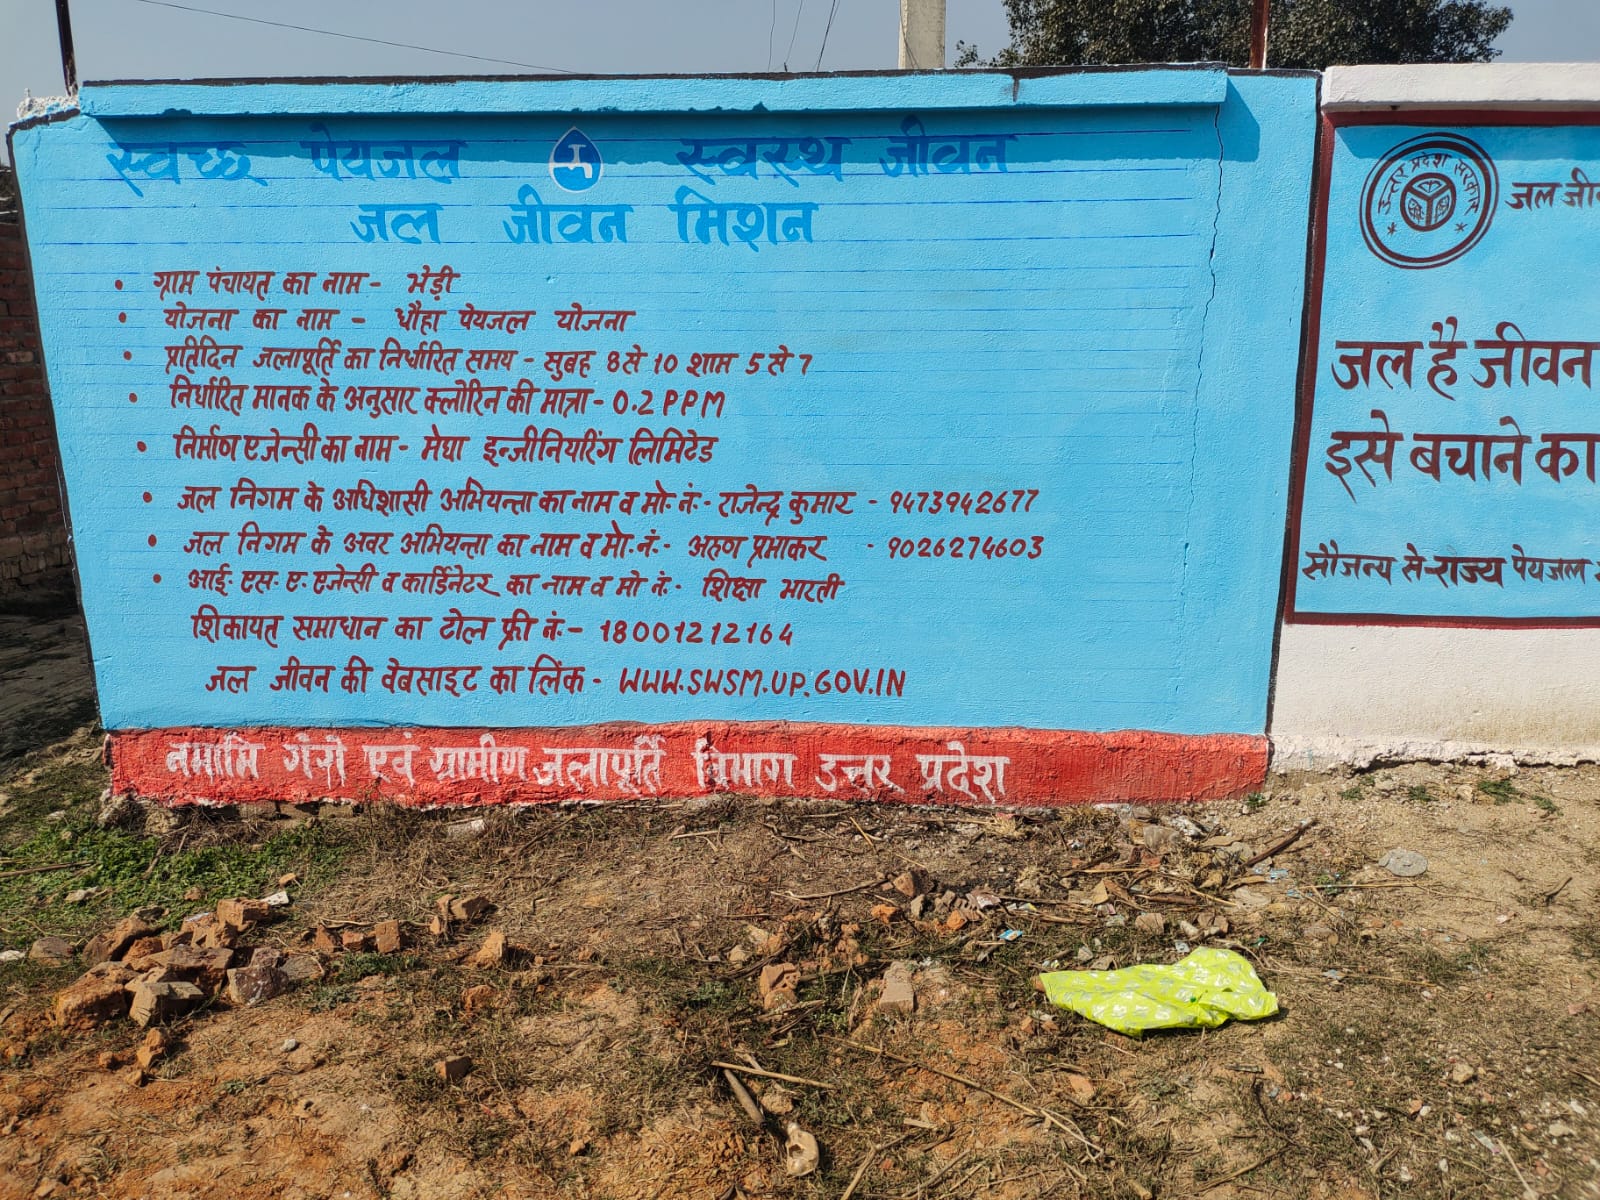 स्वच्छ पेयजल स्वस्थ जीवन
जल जीवन मिशन
• ग्राम पंचायत का नाम - भेड़ी
• योजना का नाम - धौहा पेयजल योजना
• प्रतिदिन जलापूर्ति का निर्धारित समय - सुबह 8 से 10 शाम 5 से 7
• निर्धारित मानक के अनुसार क्लोरिन की मात्रा - 0.2 PPM
• निर्माण एजेन्सी का नाम - मेघा इन्जीनियरिंग लिमिटेड
• जल निगम के अधिशासी अभियन्ता का नाम व मो. नं. - राजेन्द्र कुमार - 9473942677
• जल निगम के अवर अभियन्ता का नाम व मो. नं. - अरुण प्रभाकर - 9026274603
• आई. एस. ए. एजेन्सी व कार्डिनेटर का नाम व मो नं. - शिक्षा भारती
शिकायत समाधान का टोल फ्री नं. - 18001212164
जल जीवन की वेबसाइट का लिंक - WWW.SWSM.UP.GOV.IN
नमामि गंगे एवं ग्रामीण जलापूर्ति विभाग उत्तर प्रदेश
उत्तर प्रदेश सरकार
जल जी
जल है जीवन
इसे बचाने का
सौजन्य से-राज्य पेयजल